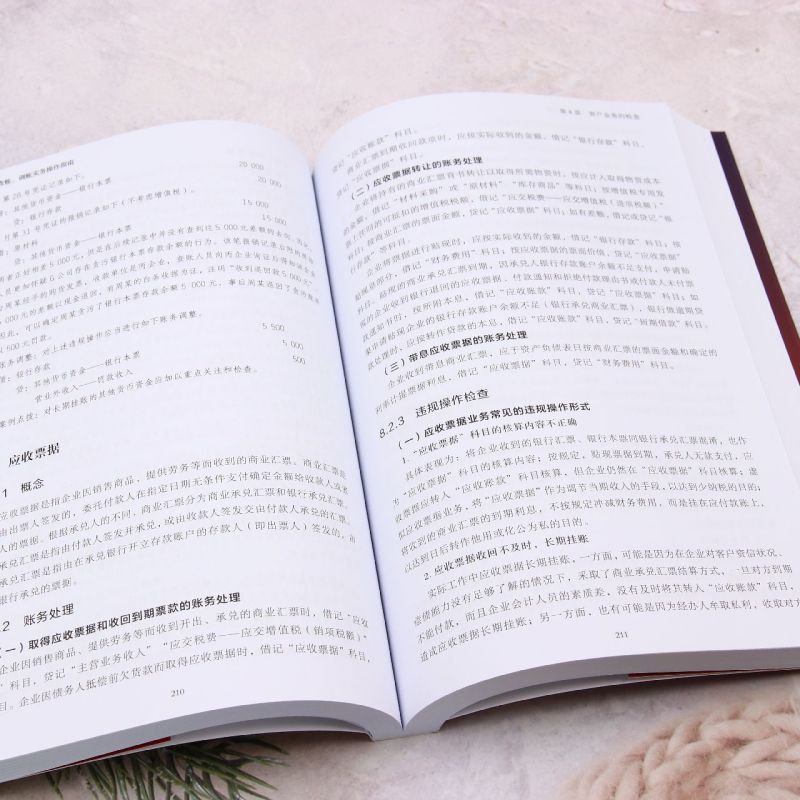 调账实务操作指南
第28号凭证记录如下。
贷：其他货币资金——银行本票 20 000
贷：银行存款 20 000
付第31号凭证的报销记录如下（不考虑增值税）。
原材料 15 000
贷：其他货币资金——银行本票 15 000
两者正好相差5 000元，但是在后续记录中并没有查到这5 000元差额的报销记录
5 500
贷：其他货币资金——银行本票 5 000
营业外收入——罚款收入 500
案例点拨：对长期挂账的其他货币资金应加以重点关注和检查。
应收票据
1 概念
应收票据是指企业因销售商品、提供劳务等而收到的商业汇票。商业汇票是
由出票人签发的，委托付款人在指定日期无条件支付确定金额给收款人或者
人的票据。根据承兑人的不同，商业汇票分为商业承兑汇票和银行承兑汇票。
承兑汇票是指由付款人签发并承兑，或由收款人签发交由付款人承兑的汇票。
承兑汇票是指由在承兑银行开立存款账户的存款人（即出票人）签发的，由
银行承兑的票据。
2 账务处理
（一）取得应收票据和收回到期票款的账务处理
企业因销售商品、提供劳务等而收到开出、承兑的商业汇票时，借记“应收
”科目，贷记“主营业务收入”“应交税费——应交增值税（销项税额）”
目。企业因债务人抵偿前欠货款而取得应收票据时，借记“应收票据”科目，
210
第8章 资产业务的检查
借记“应收账款”科目。
商业汇票到期收回款项时，应按实际收到的金额，借记“银行存款”科目，
贷记“应收票据”科目。
（二）应收票据转让的账务处理
企业将持有的商业汇票背书转让以取得所需物资时，按应计入取得物资成本
的金额，借记“材料采购”或“原材料”“库存商品”等科目；按增值税专用发
票上注明的可抵扣的增值税税额，借记“应交税费——应交增值税（进项税额）”
科目；按商业汇票的票面金额，贷记“应收票据”科目；如有差额，借记或贷记“银
行存款”等科目。
企业将票据进行贴现时，应按实际收到的金额，借记“银行存款”科目；按
贴现息部分，借记“财务费用”科目；按应收票据的票面价值，贷记“应收票据”
科目。贴现的商业承兑汇票到期，因承兑人银行存款账户余额不足支付，申请贴
现的企业收到银行退回的应收票据、付款通知和拒绝付款理由书或付款人未付票
款通知书时，按所付本息，借记“应收账款”科目，贷记“银行存款”科目；如
果申请贴现企业的银行存款账户余额不足（银行承兑商业汇票），银行做逾期贷
款处理时，应按转作贷款的本息，借记“应收账款”科目，贷记“短期借款”科目。
（三）带息应收票据的账务处理
企业收到带息商业汇票，应于资产负债表日按商业汇票的票面金额和确定的
利率计提票据利息，借记“应收票据”科目，贷记“财务费用”科目。
8.2.3 违规操作检查
（一）应收票据业务常见的违规操作形式
1.“应收票据”科目的核算内容不正确
具体表现为：将企业收到的银行汇票、银行本票同银行承兑汇票混淆，也作
为“应收票据”科目的核算内容；按规定，贴现票据到期，承兑人无款支付，应
收票据应转入“应收账款”科目核算，但企业仍然在“应收票据”科目核算；虚
拟应收票据业务，将“应收票据”作为调节当期收入的手段，以达到少纳税的目的；
将收到的商业汇票的到期利息，不按规定冲减财务费用，而是挂在应付款账上，
以达到日后转作他用或化公为私的目的。
2. 应收票据收回不及时、长期挂账
实际工作中应收票据长期挂账，一方面，可能是因为在企业对客户资信状况、
偿债能力没有足够了解的情况下，采取了商业承兑汇票结算方式，一旦对方到期
不能付款，而且企业会计人员的素质差，没有及时将其转入“应收账款”科目，
造成应收票据长期挂账；另一方面，也有可能是因为经办人牟取私利，收取对方
211